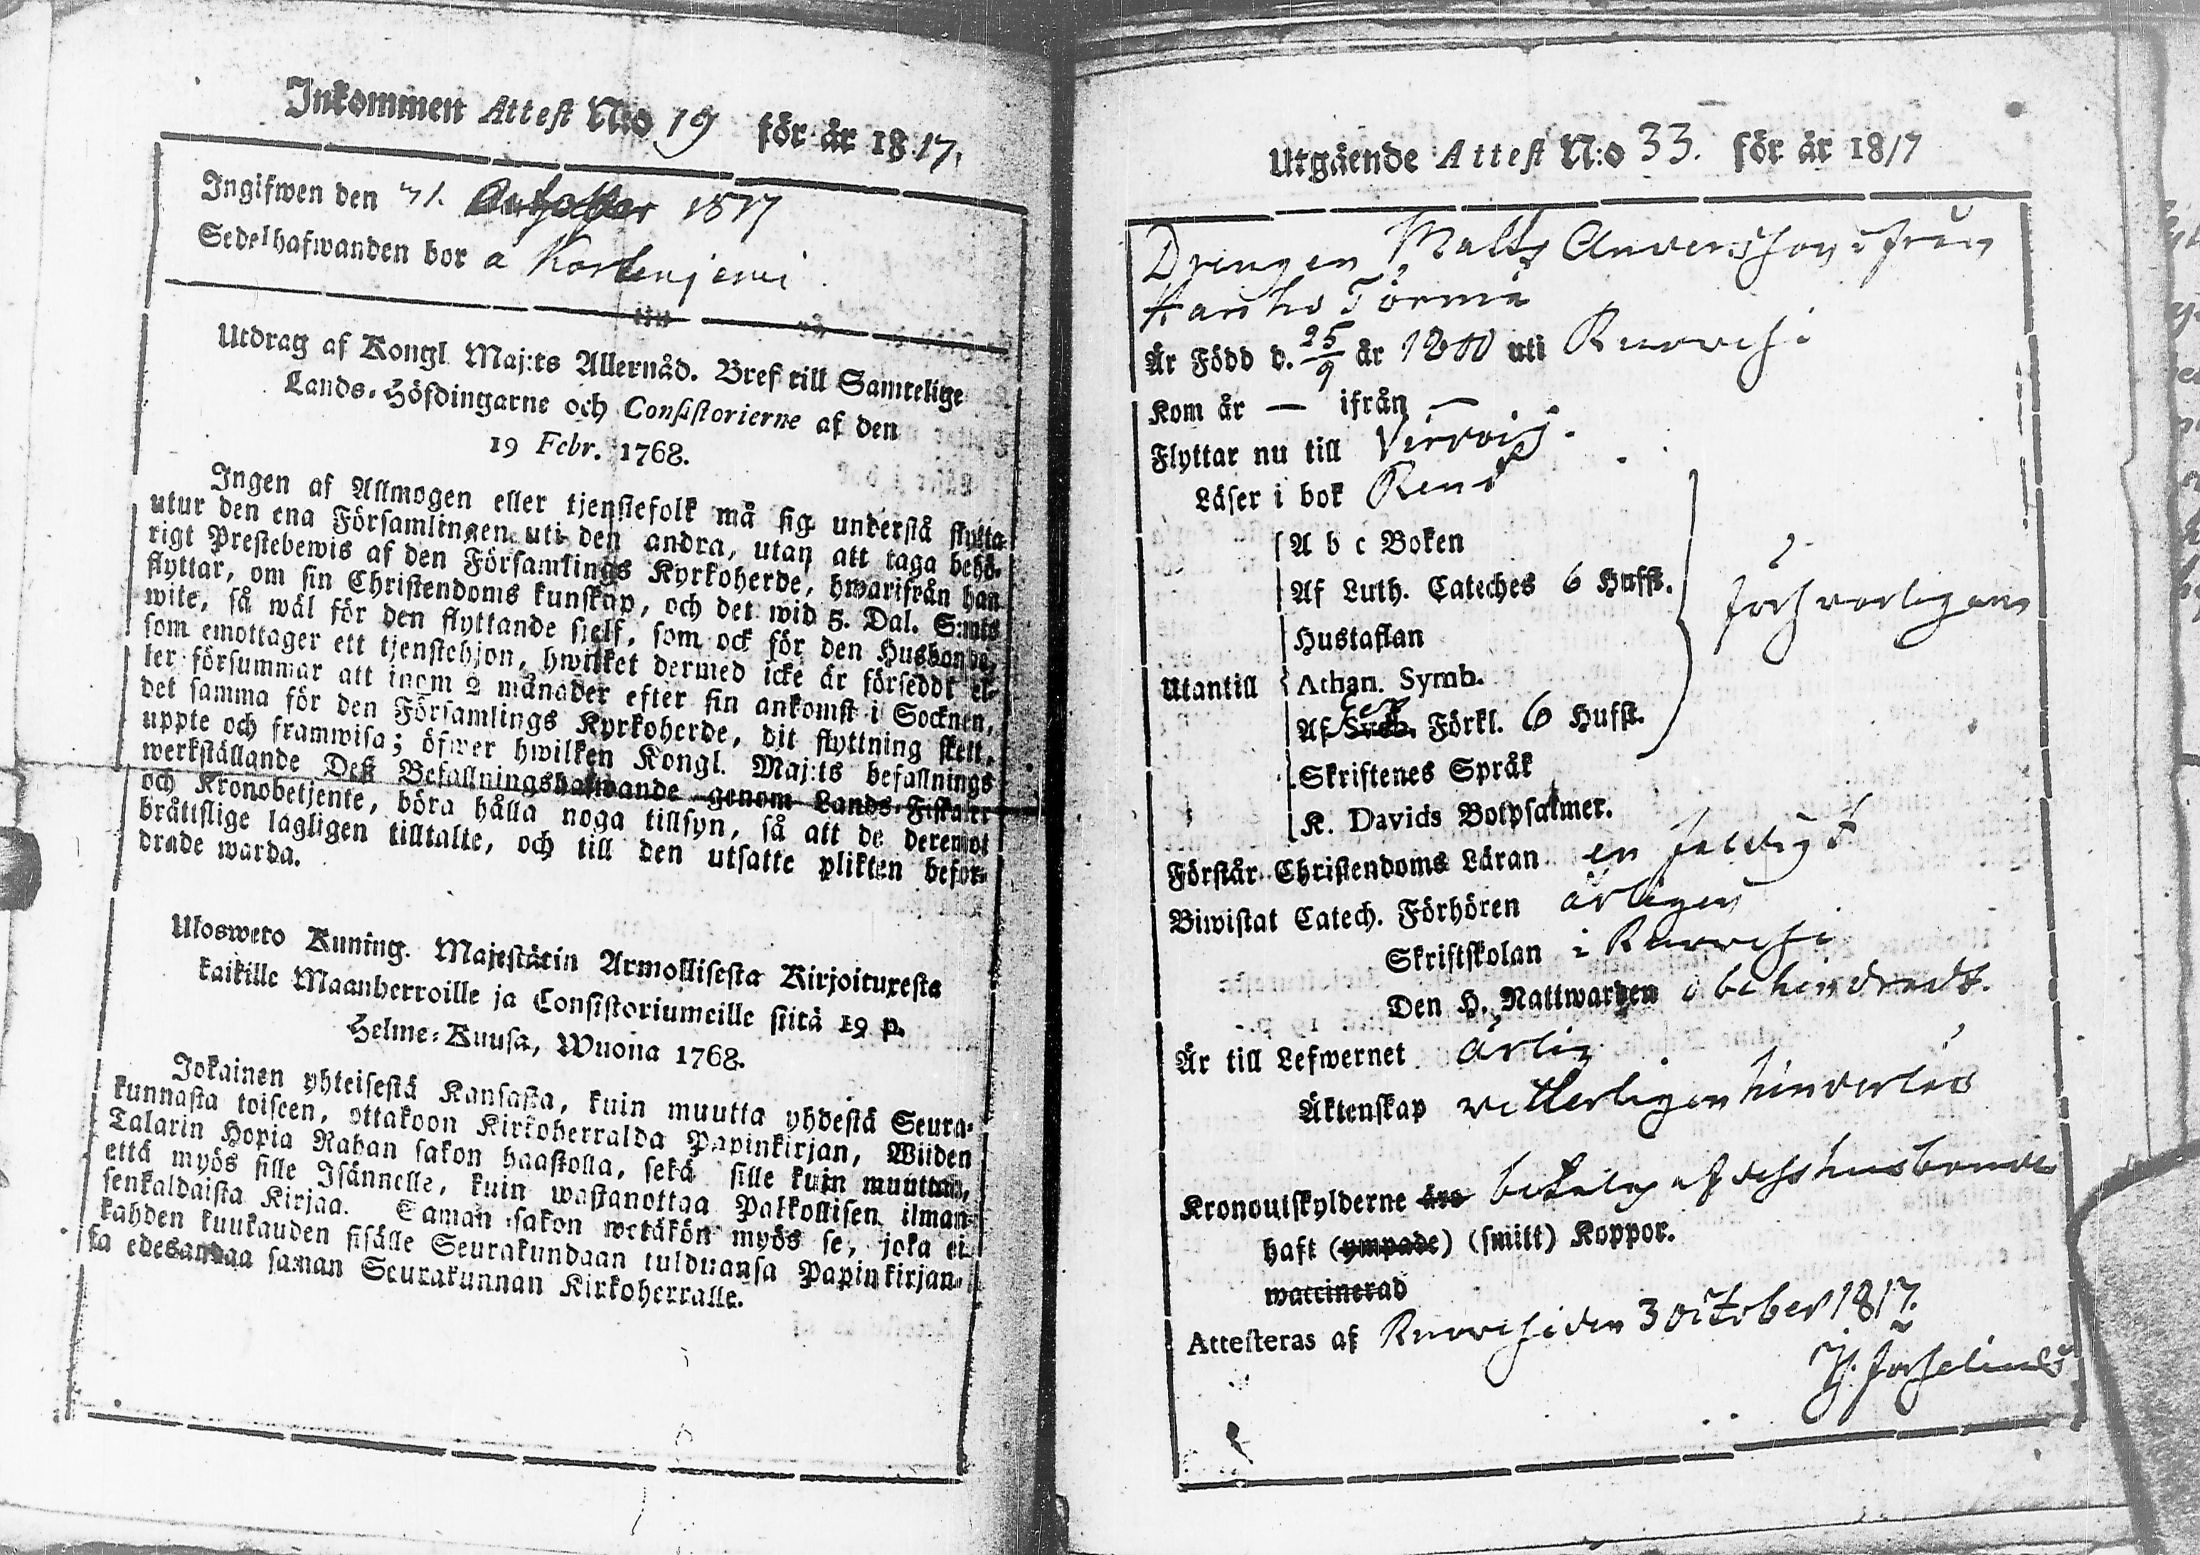 Inkommen Attest N:o 19 för år 1817.
Ingifwen den October 1817
Sedelhafwanden bor å
Utdrag af Kongl Maj:ts Allernåd. Bref till Samtelige
Lands-Höfdingarne och Consistorierne af den
19 Febr. 1768.
Ingen af Allmogen eller tjenstefolk må sig understå flytta
utur den ena Församlingen uti den andra, utan att taga behö-
rigt Prestebewis af den Församlings Kyrkoherde, hwarifrån han
flyttar, om sin Christendoms kunskap, och det wid 5. Dal. S:mts
wite, så wäl för den flyttande sjelf, som ock för den Husbonde,
som emottager ett tjenstehjon, hwilket dermed icke är förseddt el-
ler försummar att inom 2 månader efter sin ankomst i Socknen,
det samma för den Församlings Kyrkoherde, dit flyttning skett,
uppte och framwisa; öfwer hwilken Kongl. Maj:ts befallnings
werkställande Deß Befallningshafwande genom Lands-Fiskaler
och Kronobetjente, böra hålla noga tillsyn, så att de deremot
bråttslige lagligen tilltalte, och till den utsatte plikten befor-
drade warda.
Ulosweto Kuning. Majestätin Armollisesta Kirjoituxesta
kaikille Maanherroille ja Consistoriumeille siitä 19 p.
Helme-Kuusa, Wuona 1768.
Jokainen yhteisestä Kansasta, kuin muutta yhdestä Seura-
kunnasta toiseen, ottakoon Kirkoherralda Papinkirjan, Wiiden
Talarin Hopia Rahan sakon haastolla, sekä sille kuin muuttaa,
että myös sille Isännelle, kuin wastanottaa Palkollisen ilman
senkaldaista Kirjaa. Saman sakon wetäkön myös se, joka ei
kahden kuukauden sisälle Seurakundaan tulduansa Papinkirjan-
sa edesandaa saman Seurakunnan Kirkoherralle.
Utgående Attest N:o 33. för år 1817
Drengen Matts Andersson ifrån
Törmä
Är Född d. 25/9 år 1800 uti Ruovesi
Kom år — ifrån —
Flyttar nu till Virdois.
Läser i bok Rent
A b c Boken
Af Luth. Cateches 6 Hufst.
Hustaflan
försvarligen
Utantill Athan. Symb.
Af Sveb. Förkl. 6 Hufst.
Skriftenes Språk
K. Davids Botpsalmer.
Förstår Christendoms Läran enfaldigt
Biwistat Catech. Förhören årligen
Skriftskolan i Ruovesi
Den H. Nattwarden obehindradt.
Är till Lefwernet ärlig
Äktenskap vitterligen hinderlös
Kronoutskylderne äro betalas af dess husbonde
haft (ympade) (smitt) Koppor.
waccinerad
Attesteras af Ruovesi den 3 October 1817.